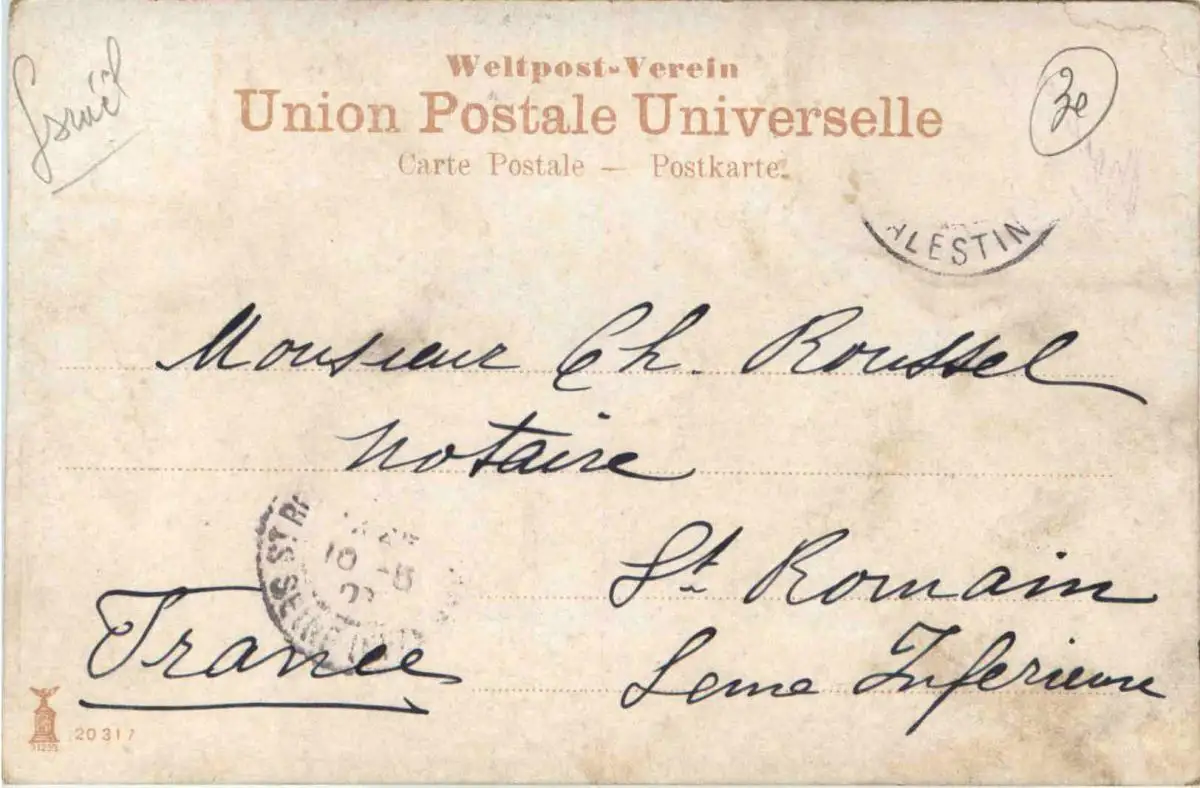 Israël
Weltpost-Verein
Union Postale Universelle
Carte Postale — Postkarte.
3e
ALESTIN
Monsieur Ch. Roussel
notaire
St Romain
Seine Inferieure
France
20317